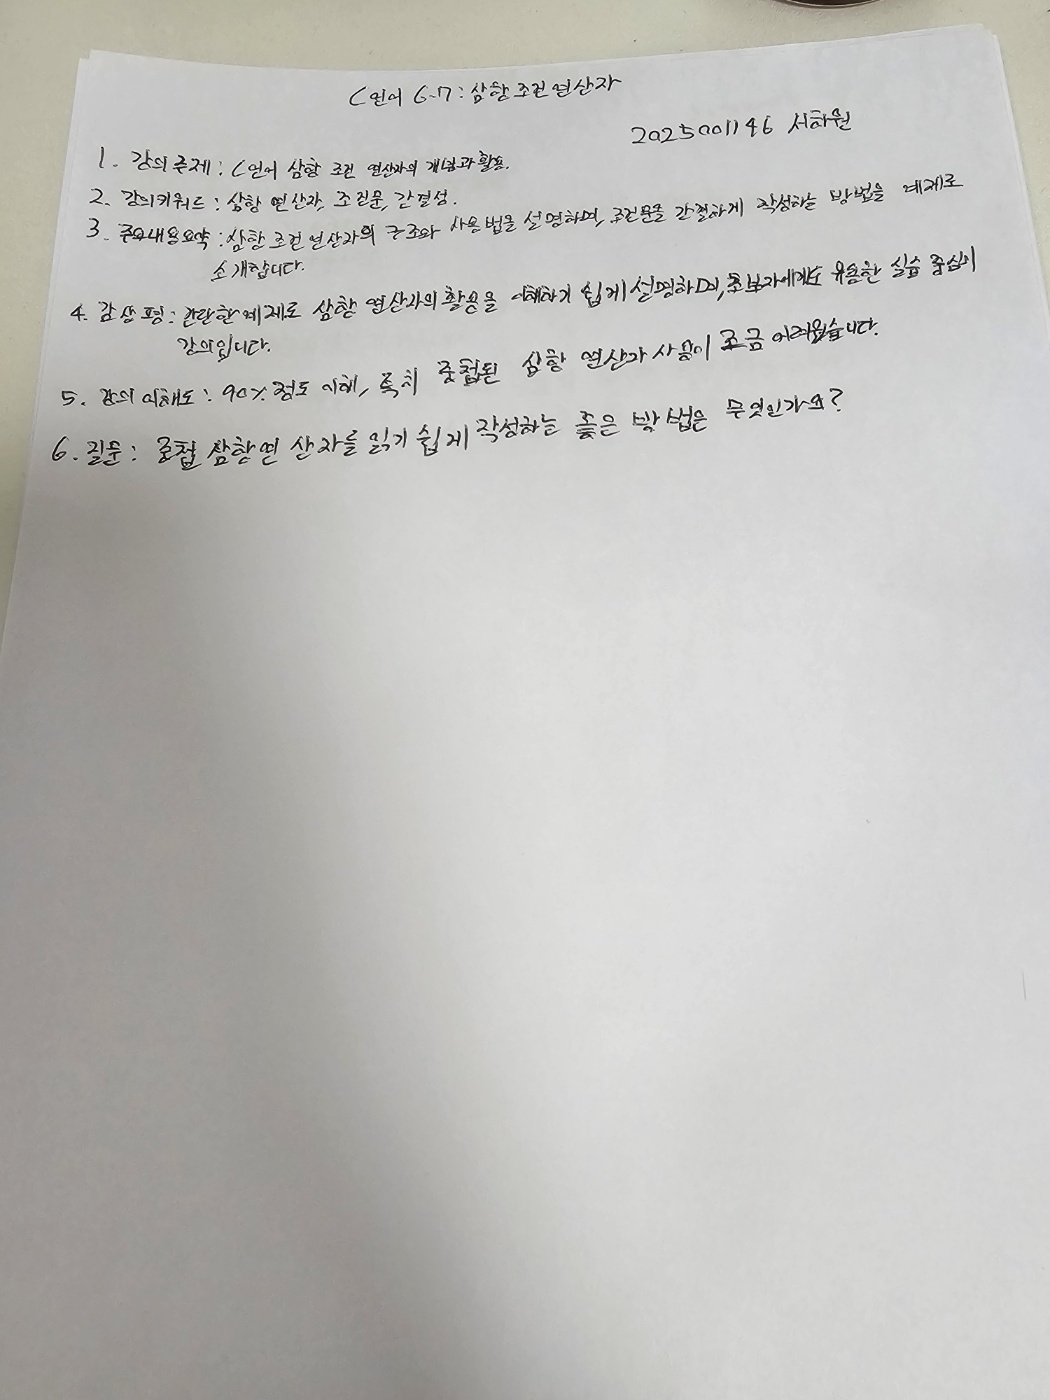 C언어 6-7 : 삼항 조건 연산자
2025001146 서하원
1. 강의 주제 : C언어 삼항 조건 연산자의 개념과 활용.
2. 강의키워드 : 삼항 연산자, 조건문, 간결성.
3. 주요내용요약 : 삼항 조건 연산자의 구조와 사용법을 설명하며, 조건문을 간결하게 작성하는 방법을 예제로
소개합니다.
4. 감상평 : 간단한 예제로 삼항 연산자의 활용을 이해하기 쉽게 설명하며, 초보자에게도 유용한 실습 중심의
강의입니다.
5. 강의 이해도 : 90% 정도 이해, 특히 중첩된 삼항 연산자 사용이 조금 어려웠습니다.
6. 질문 : 중첩 삼항연산자를 읽기 쉽게 작성하는 좋은 방법은 무엇인가요?